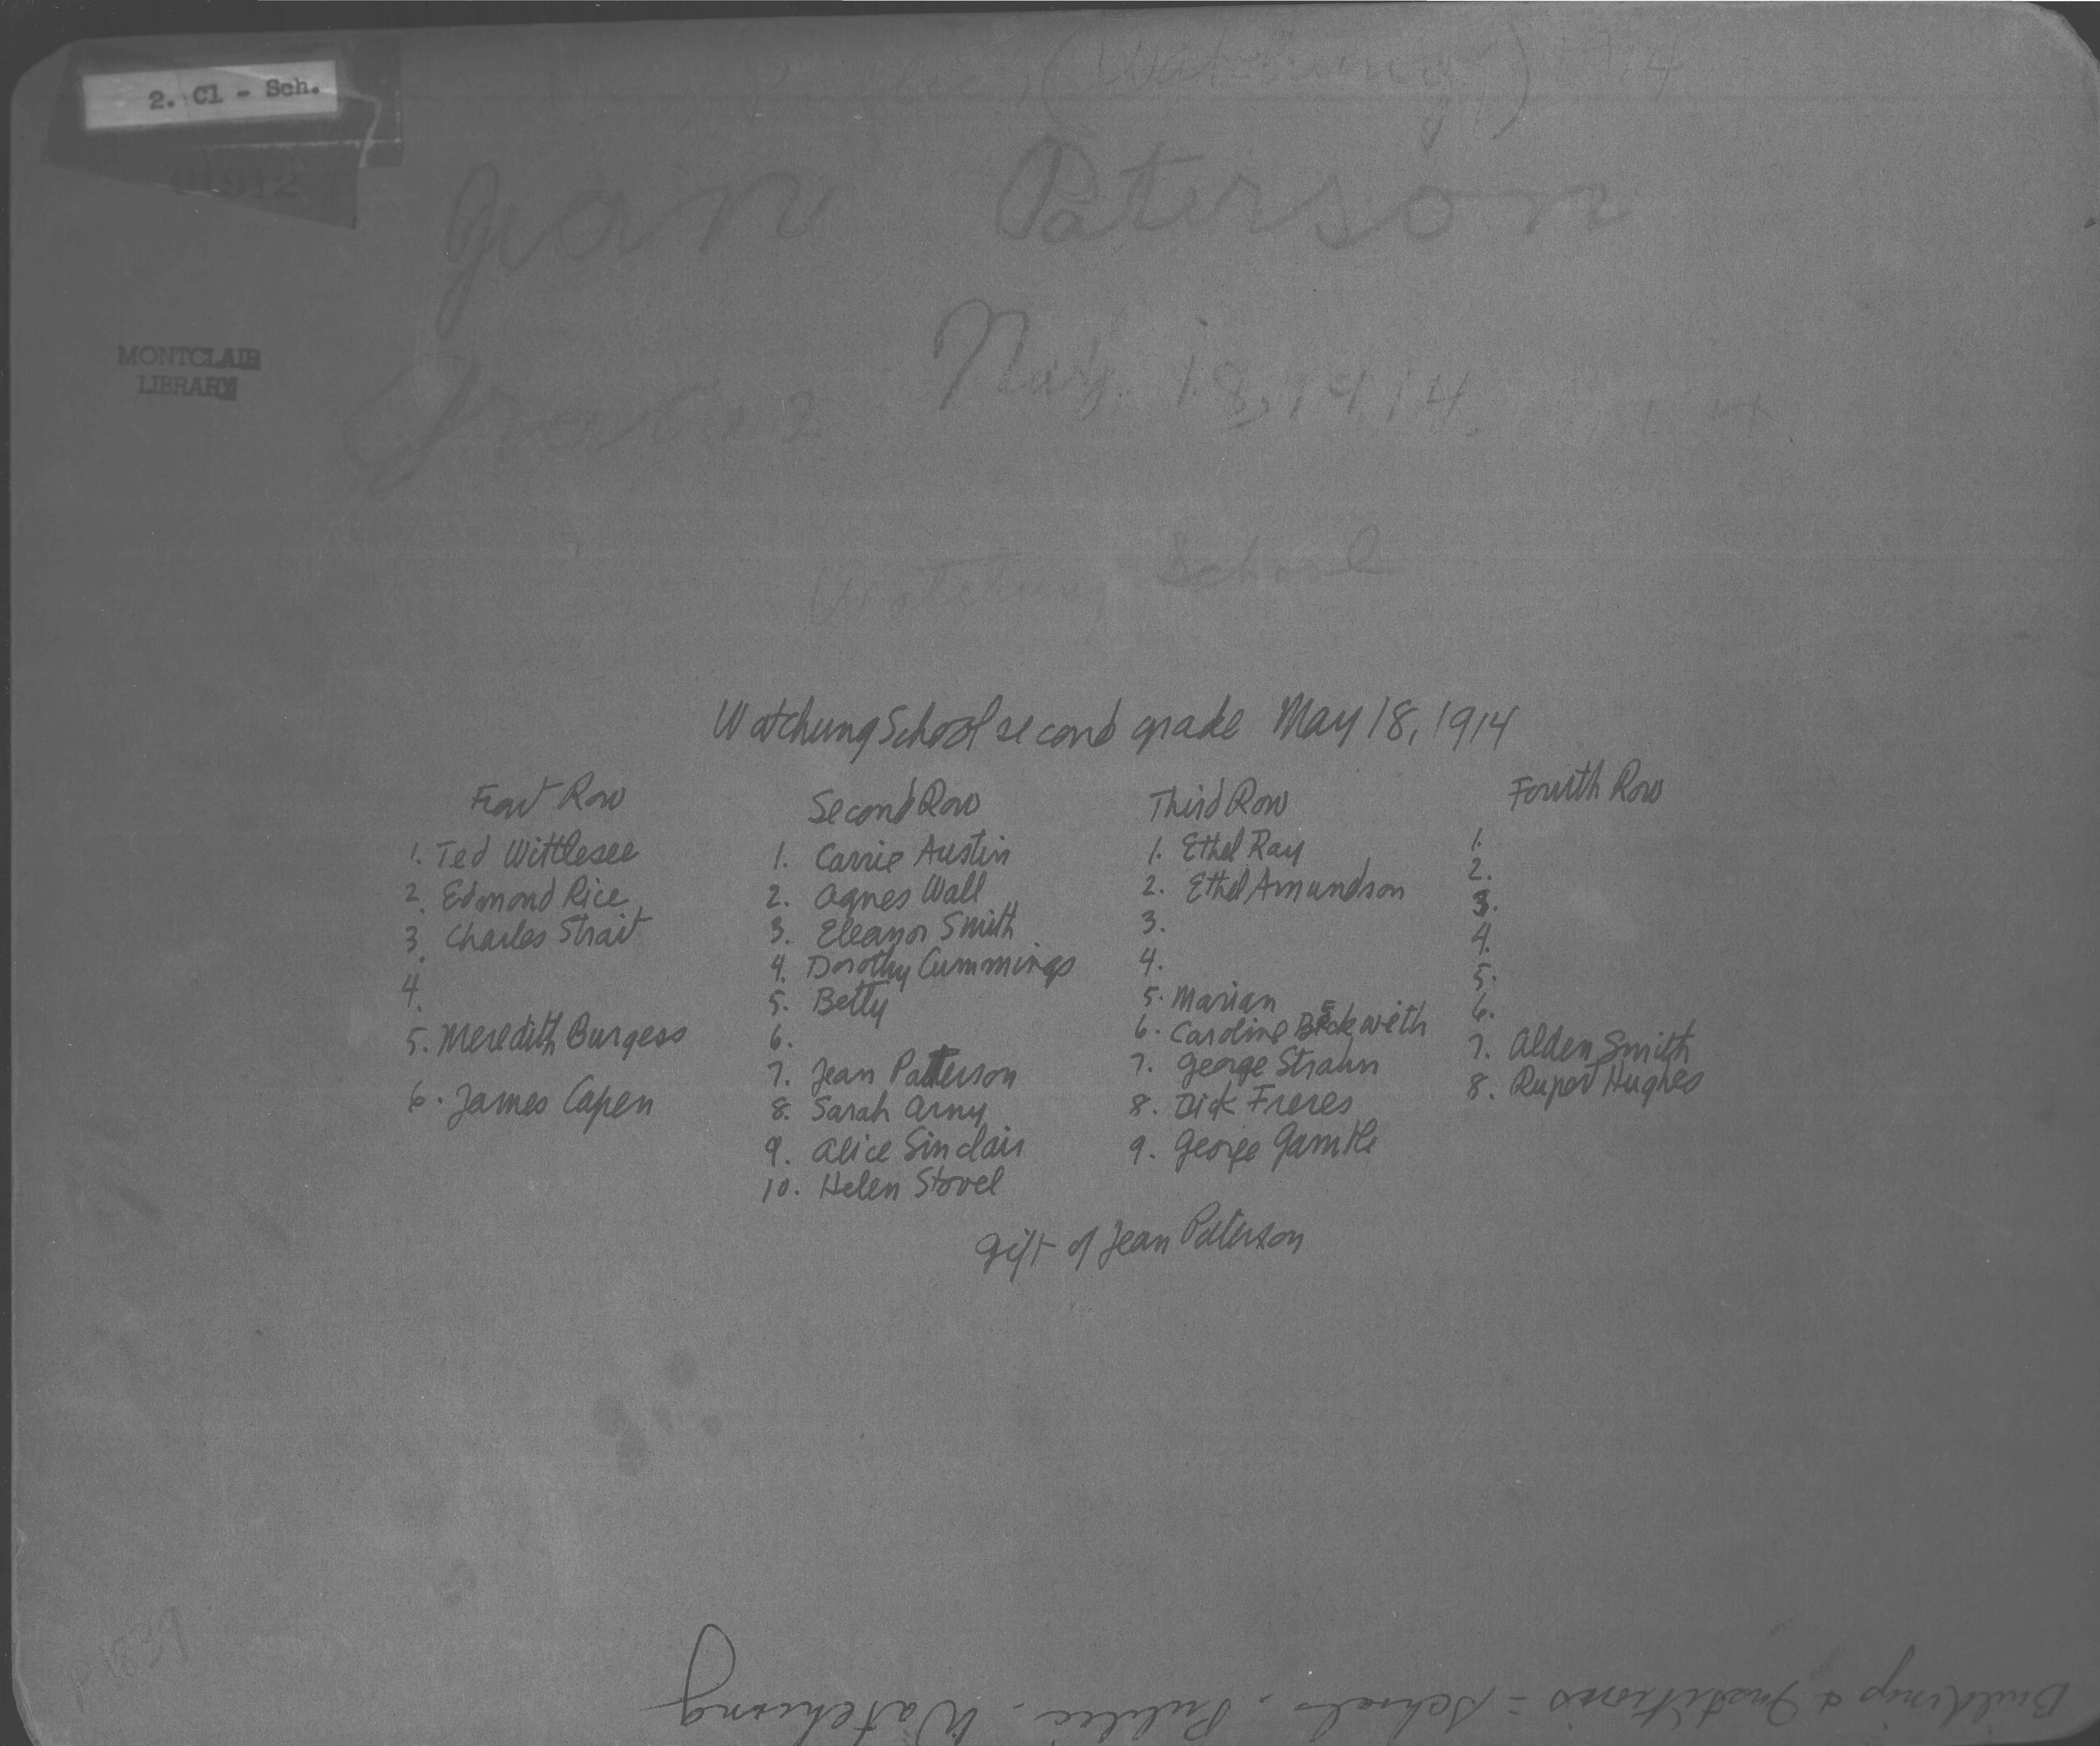 2. Cl - Sch.
01912
(Watchung) 1914
Jean Paterson
MONTCLAIR
LIBRARY
May 18, 1914.
Grade 2
Watchung School
Watchung School second grade May 18, 1914
Front Row
1. Ted Wittlesee
2. Edmond Rice
3. Charles Strait
4.
5. Meredith Burgess
6. James Capen
Second Row
1. Carrie Austin
2. Agnes Wall
3. Eleanor Smith
4. Dorothy Cummings
5. Betty
6.
7. Jean Patterson
8. Sarah Arny
9. Alice Sinclair
10. Helen Stovel
Third Row
1. Ethel Ray
2. Ethel Amundson
3.
4.
5. Marian
6. Caroline Beckweith
7. George Strahn
8. Dick Freres
9. George Gamble
Fourth Row
1.
2.
3.
4.
5.
6.
7. Alden Smith
8. Rupert Hughes
Gift of Jean Paterson
P1839
Buildings & Institions = Schools. Public. Watchung